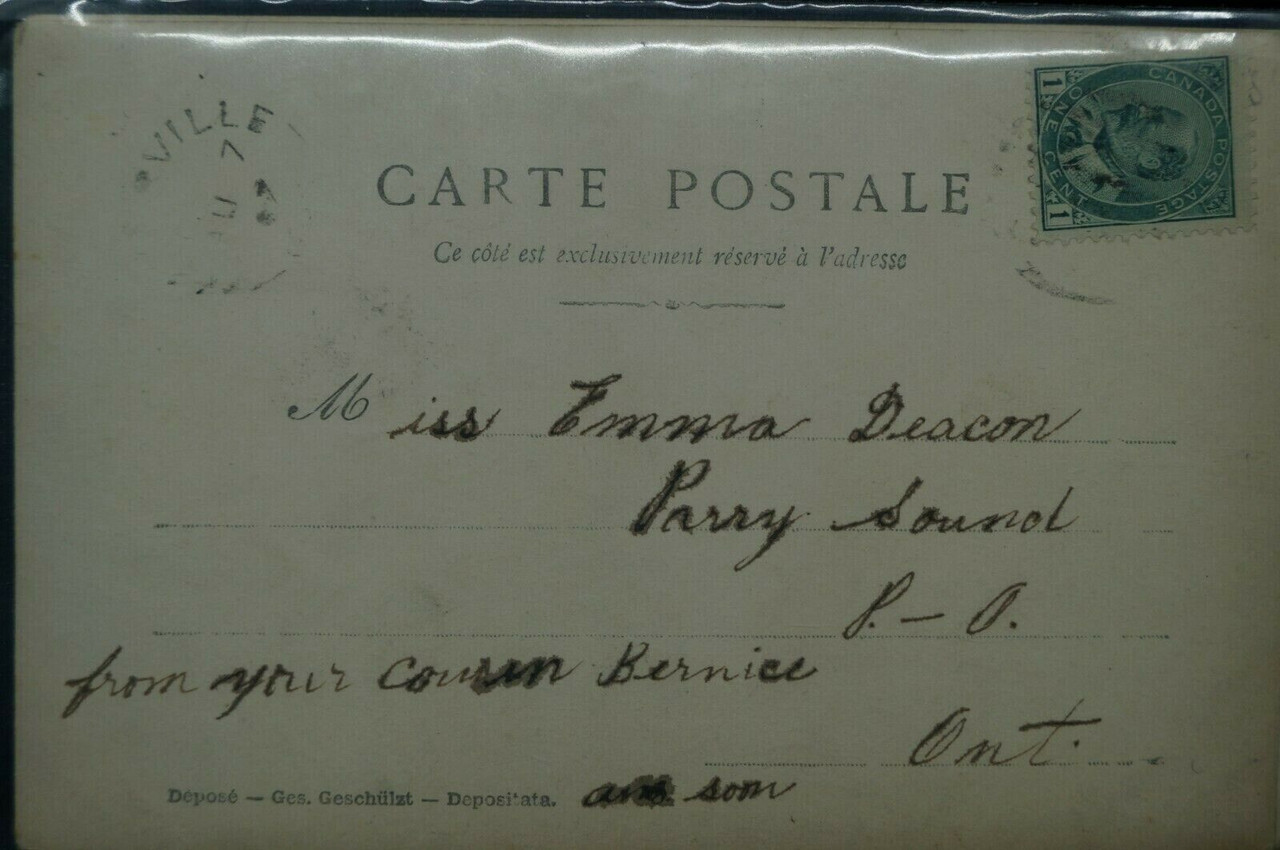 VILLE
7
CANADA POSTAGE
1 ONE CENT 1
CARTE POSTALE
Ce côté est exclusivement réservé à l'adresse
Miss Emma Deacon
Parry Sound
P. - O.
from your cousin Bernice
Ont.
Déposé — Ges. Geschülzt — Depositata.
soon